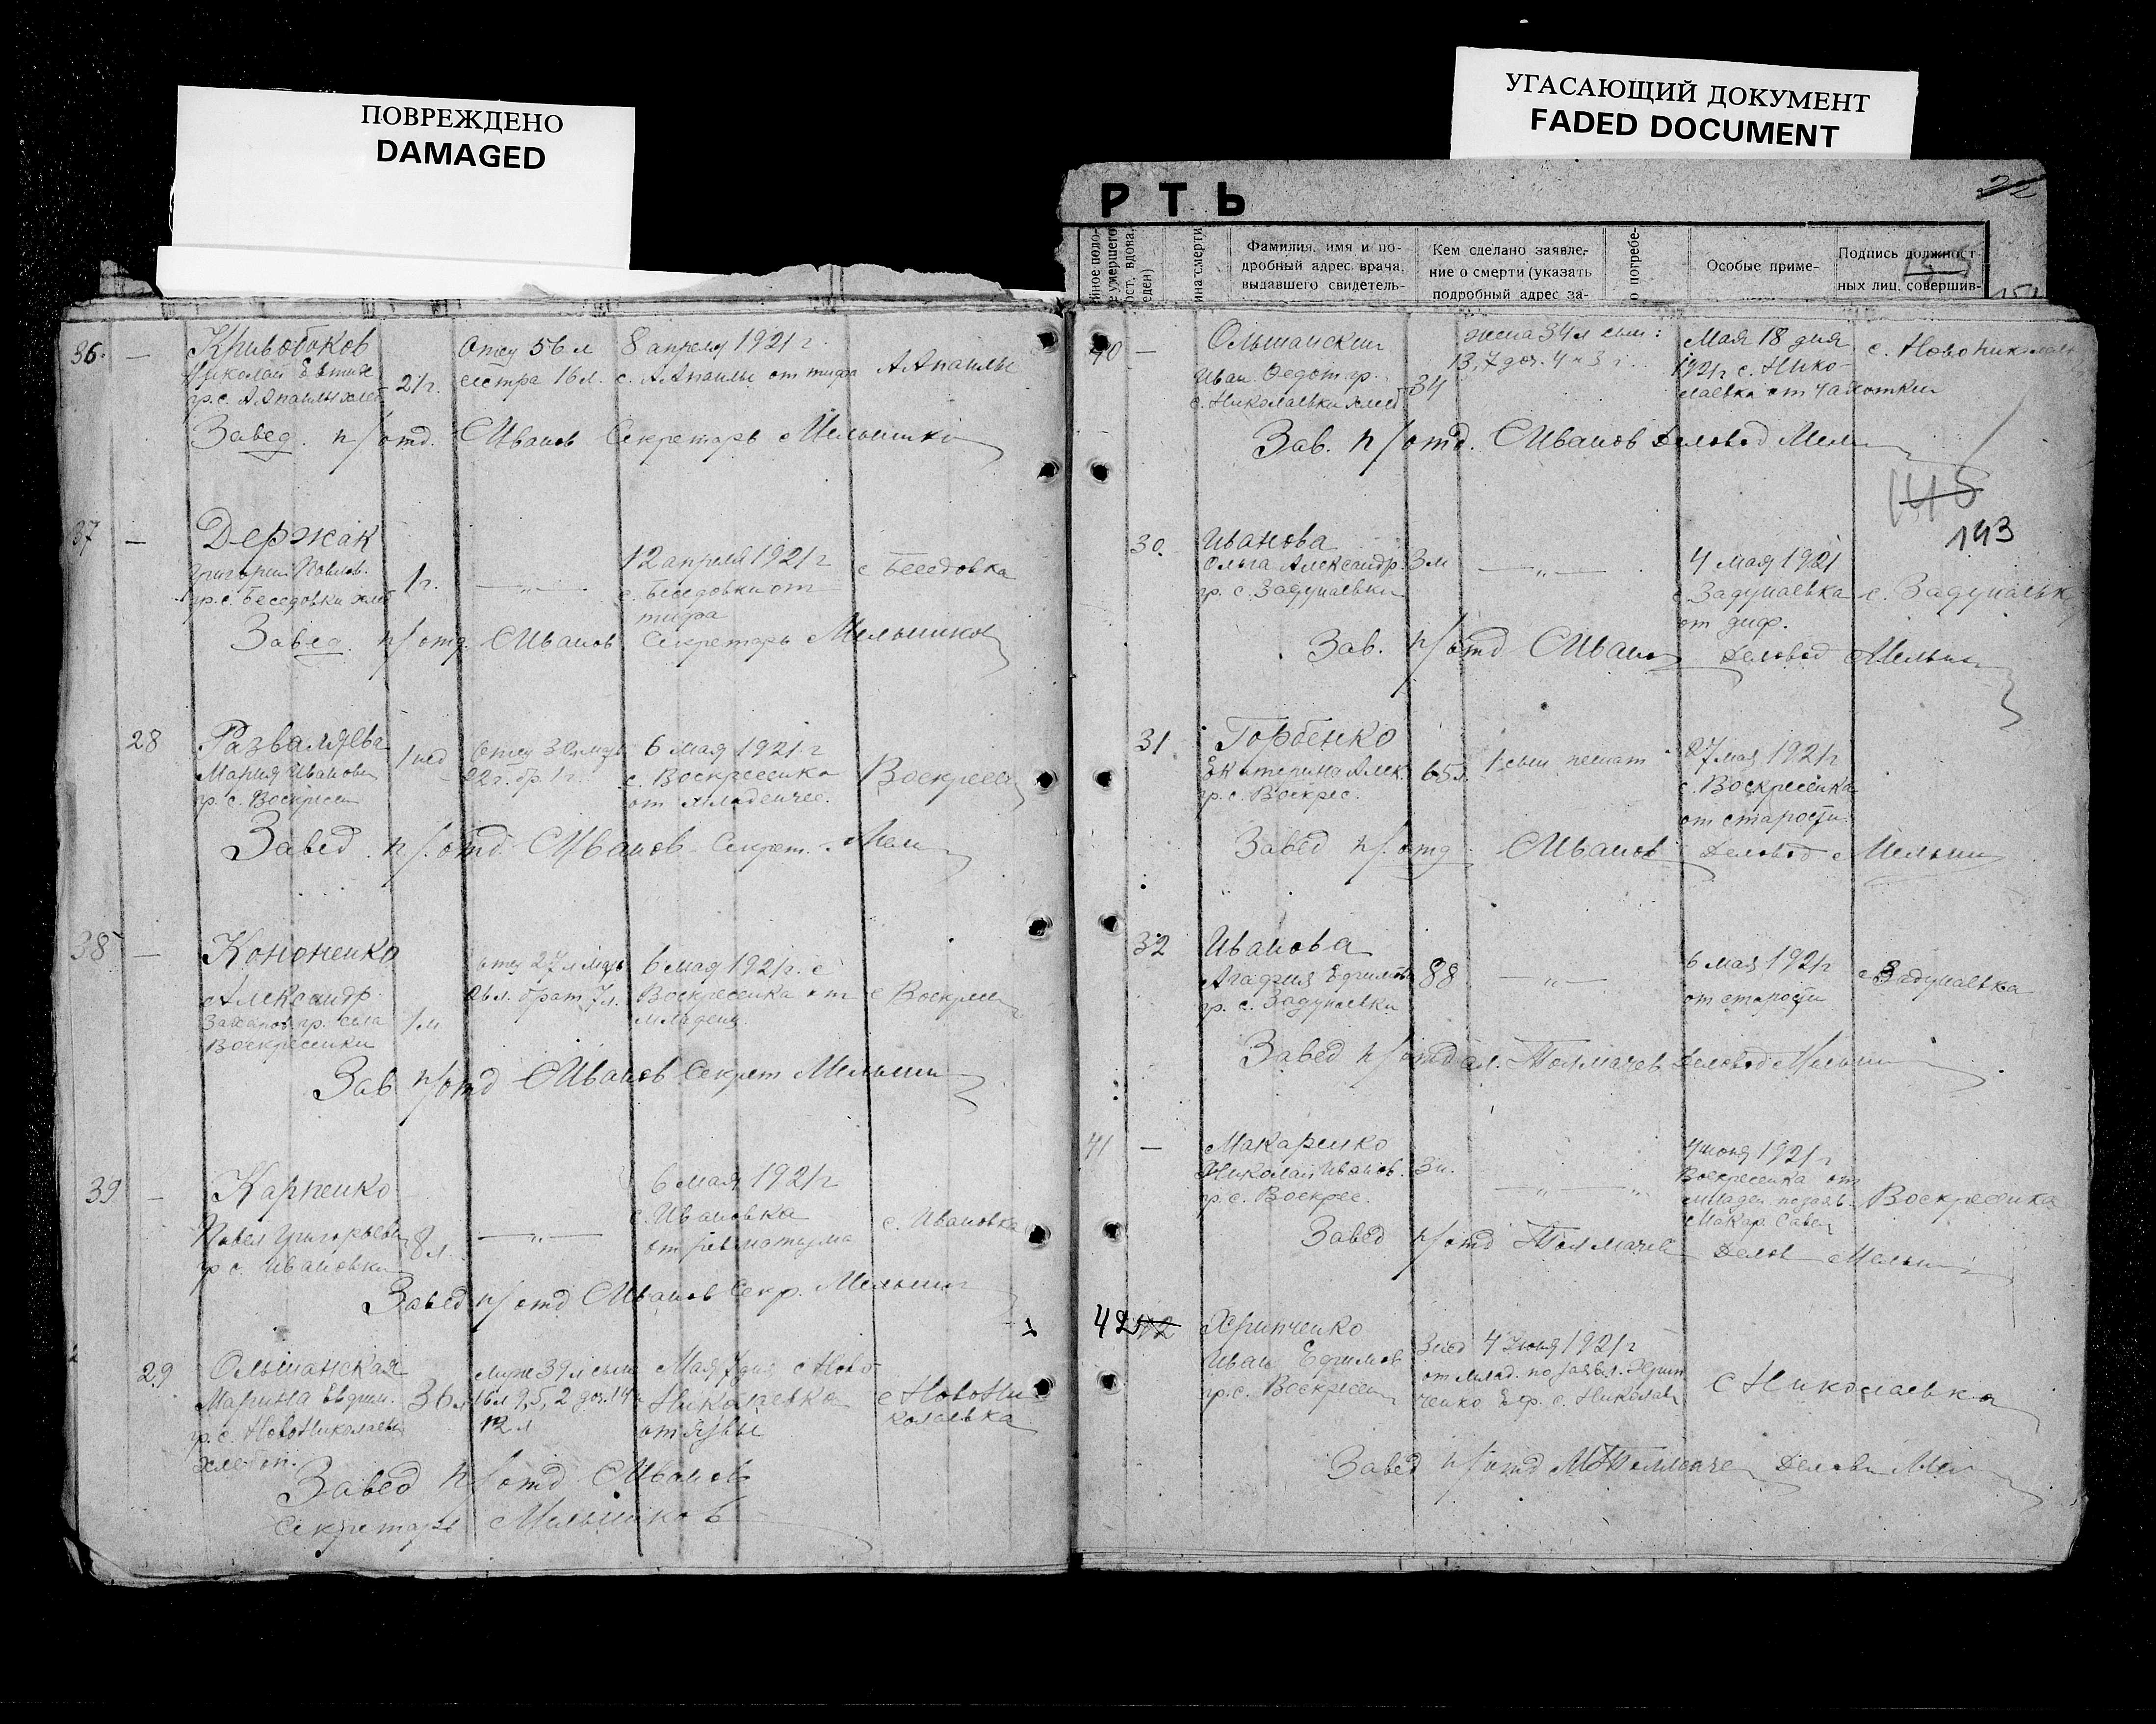 ПОВРЕЖДЕНО
DAMAGED
УГАСАЮЩИЙ ДОКУМЕНТ
FADED DOCUMENT
Р Т Ь
22
Фамилия, имя и по-
дробный адрес врача,
выдавшего свидетель-
Кем сделано заявле-
ние о смерти (указать
подробный адрес за-
о погребе-
Особые приме-
Подпись должност-
ных лиц, совершив-
36. — Кривобоков
Николай
гр. с. 21г.
Отец 56 л
сестра 16 л.
8 апреля 1921 г.
от тифа
Завед. п/отд. СИванов Секретарь Мельников
37 — Держак
Григорий Павлов.
гр. с. Беседовки хлеб
1 г.
— „ —
12 апреля 1921 г
с. Беседовки от
тифа
с Беседовка
Завед. п/отд. СИванов Секретарь Мельников
28 Разваляева
Мария Иванова
гр. с. Воскресен
1 нед
22 г. бр. 1 г.
6 мая 1921 г
с. Воскресенка
от младенчес.
Воскресен
Завед. п/отд. СИванов Секрет. Мель
38 — Кононенко
Александр
гр. села
Воскресенки
1 м
отец 27 л мать
26 л. брат 7 л.
6 мая 1921 г. с
Воскресенка от
младенч
с Воскресен
Зав п/отд СИванов Секрет Мельни
39 — Карпенко
Павел Григорьев
гр с. Ивановки
8 л.
— „ —
6 мая 1921 г
с. Ивановка
от ревматизма
с. Ивановка
Завед п/отд СИванов Секр. Мельник
29 Ольшанская
Марина
гр. с. НовоНиколаевки
хлебоп.
36 л
муж 39 л сын
16 л 9, 5, 2 доч. 14
12 л
Мая 7 дня с Ново-
Николаевка
от язвы
с НовоНи
колаевка
Завед п/отд СИванов
Секретарь Мельников
40 — Ольшанский
Иван Федот. гр.
с. Николаевки хлеб
34
жена 34 л сын:
13, 7 доч. 4 и 3 г.
Мая 18 дня
1921 г с. Нико-
лаевка от чахотки
с. НовоНиколаев
Зав. п/отд. СИванов Деловод Мель
145
143
30. Иванова
Ольга Александр.
гр. с. Задунаевки
3 м
— „ —
4 мая 1921
с Задунаевка
от диф.
с. Задунаевк
Зав. п/отд СИванов Деловод Мельни
31 Горбенко
Екатерина Алек.
гр. с. Воскрес.
65 л.
27 мая 1921 г
с. Воскресенка
от старости.
Завед п/отд. СИванов Деловод Мельни
32 Иванова
Агафия Ефимова
гр. с. Задунаевки
88
— „ —
6 мая 1921 г
от старости
с Задунаевка
Завед п/отд Толмачев Деловод Мельни
41 — Макаренко
Николай Иванов.
гр. с. Воскрес.
— „ — „
4 июня 1921 г
Воскресенка от
младен по заяв.
Макар. Савел
Воскресенка
Завед п/отд Толмачев Делов Мельни
42 Хрипченко
Иван Ефимов
гр. с. Воскресен
3 нед 4 Июня 1921 г
от млад. по заявл. Хрип
ченко Еф. с. Николаев
с Николаевка
Завед п/отд Толмаче Делов Мел